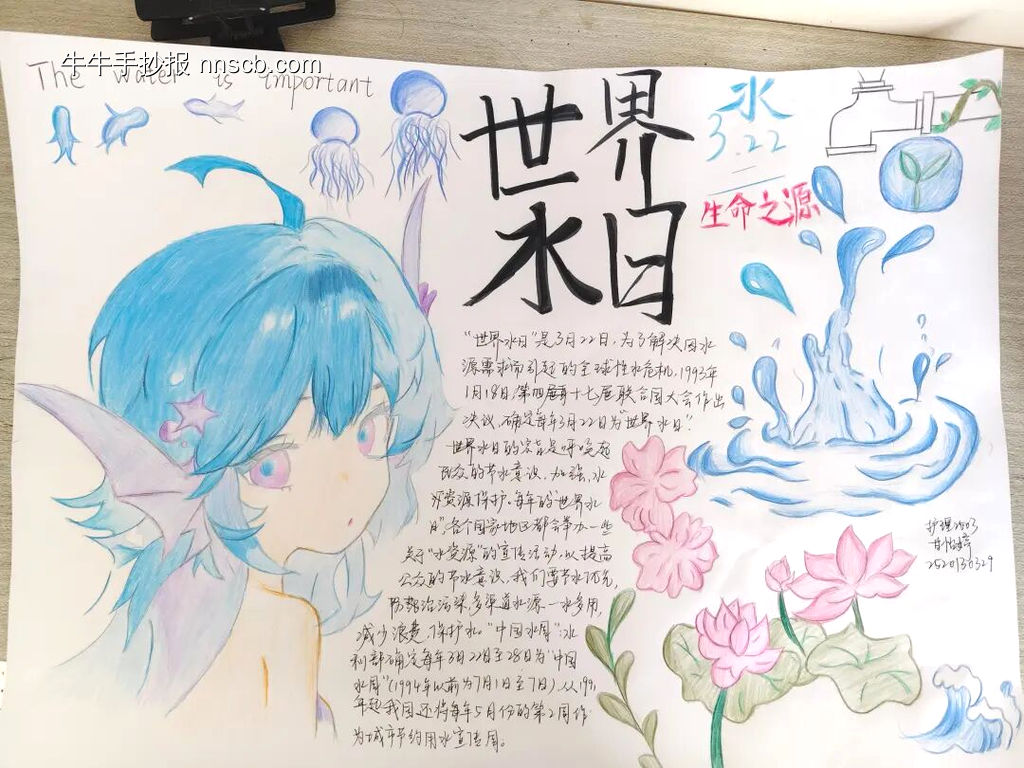 牛牛手抄报 nnscb.com
The water is important
世界
水日
水
3.22
生命之源
"世界水日"是3月22日,为了解决因水
源需求而引起的全球性水危机,1993年
1月18日,第四十七届联合国大会作出
决议,确定每年3月22日为"世界水日".
世界水日的宗旨是呼唤起
民众的节水意识,加强水
资源保护.每年的"世界水
日",各个国家地区都会举办一些
关于"水资源"的宣传活动,以提高
公众的节水意识,我们要节水优先,
防治污染,多渠道水源,一水多用,
减少浪费,保护水."中国水周":水
利部确定每年3月22日至28日为"中国
水周"(1994年以前为7月1日至7日),从1991
年起我国还将每年5月份的第2周作
为城市节约用水宣传周。
护理2503
2520130329